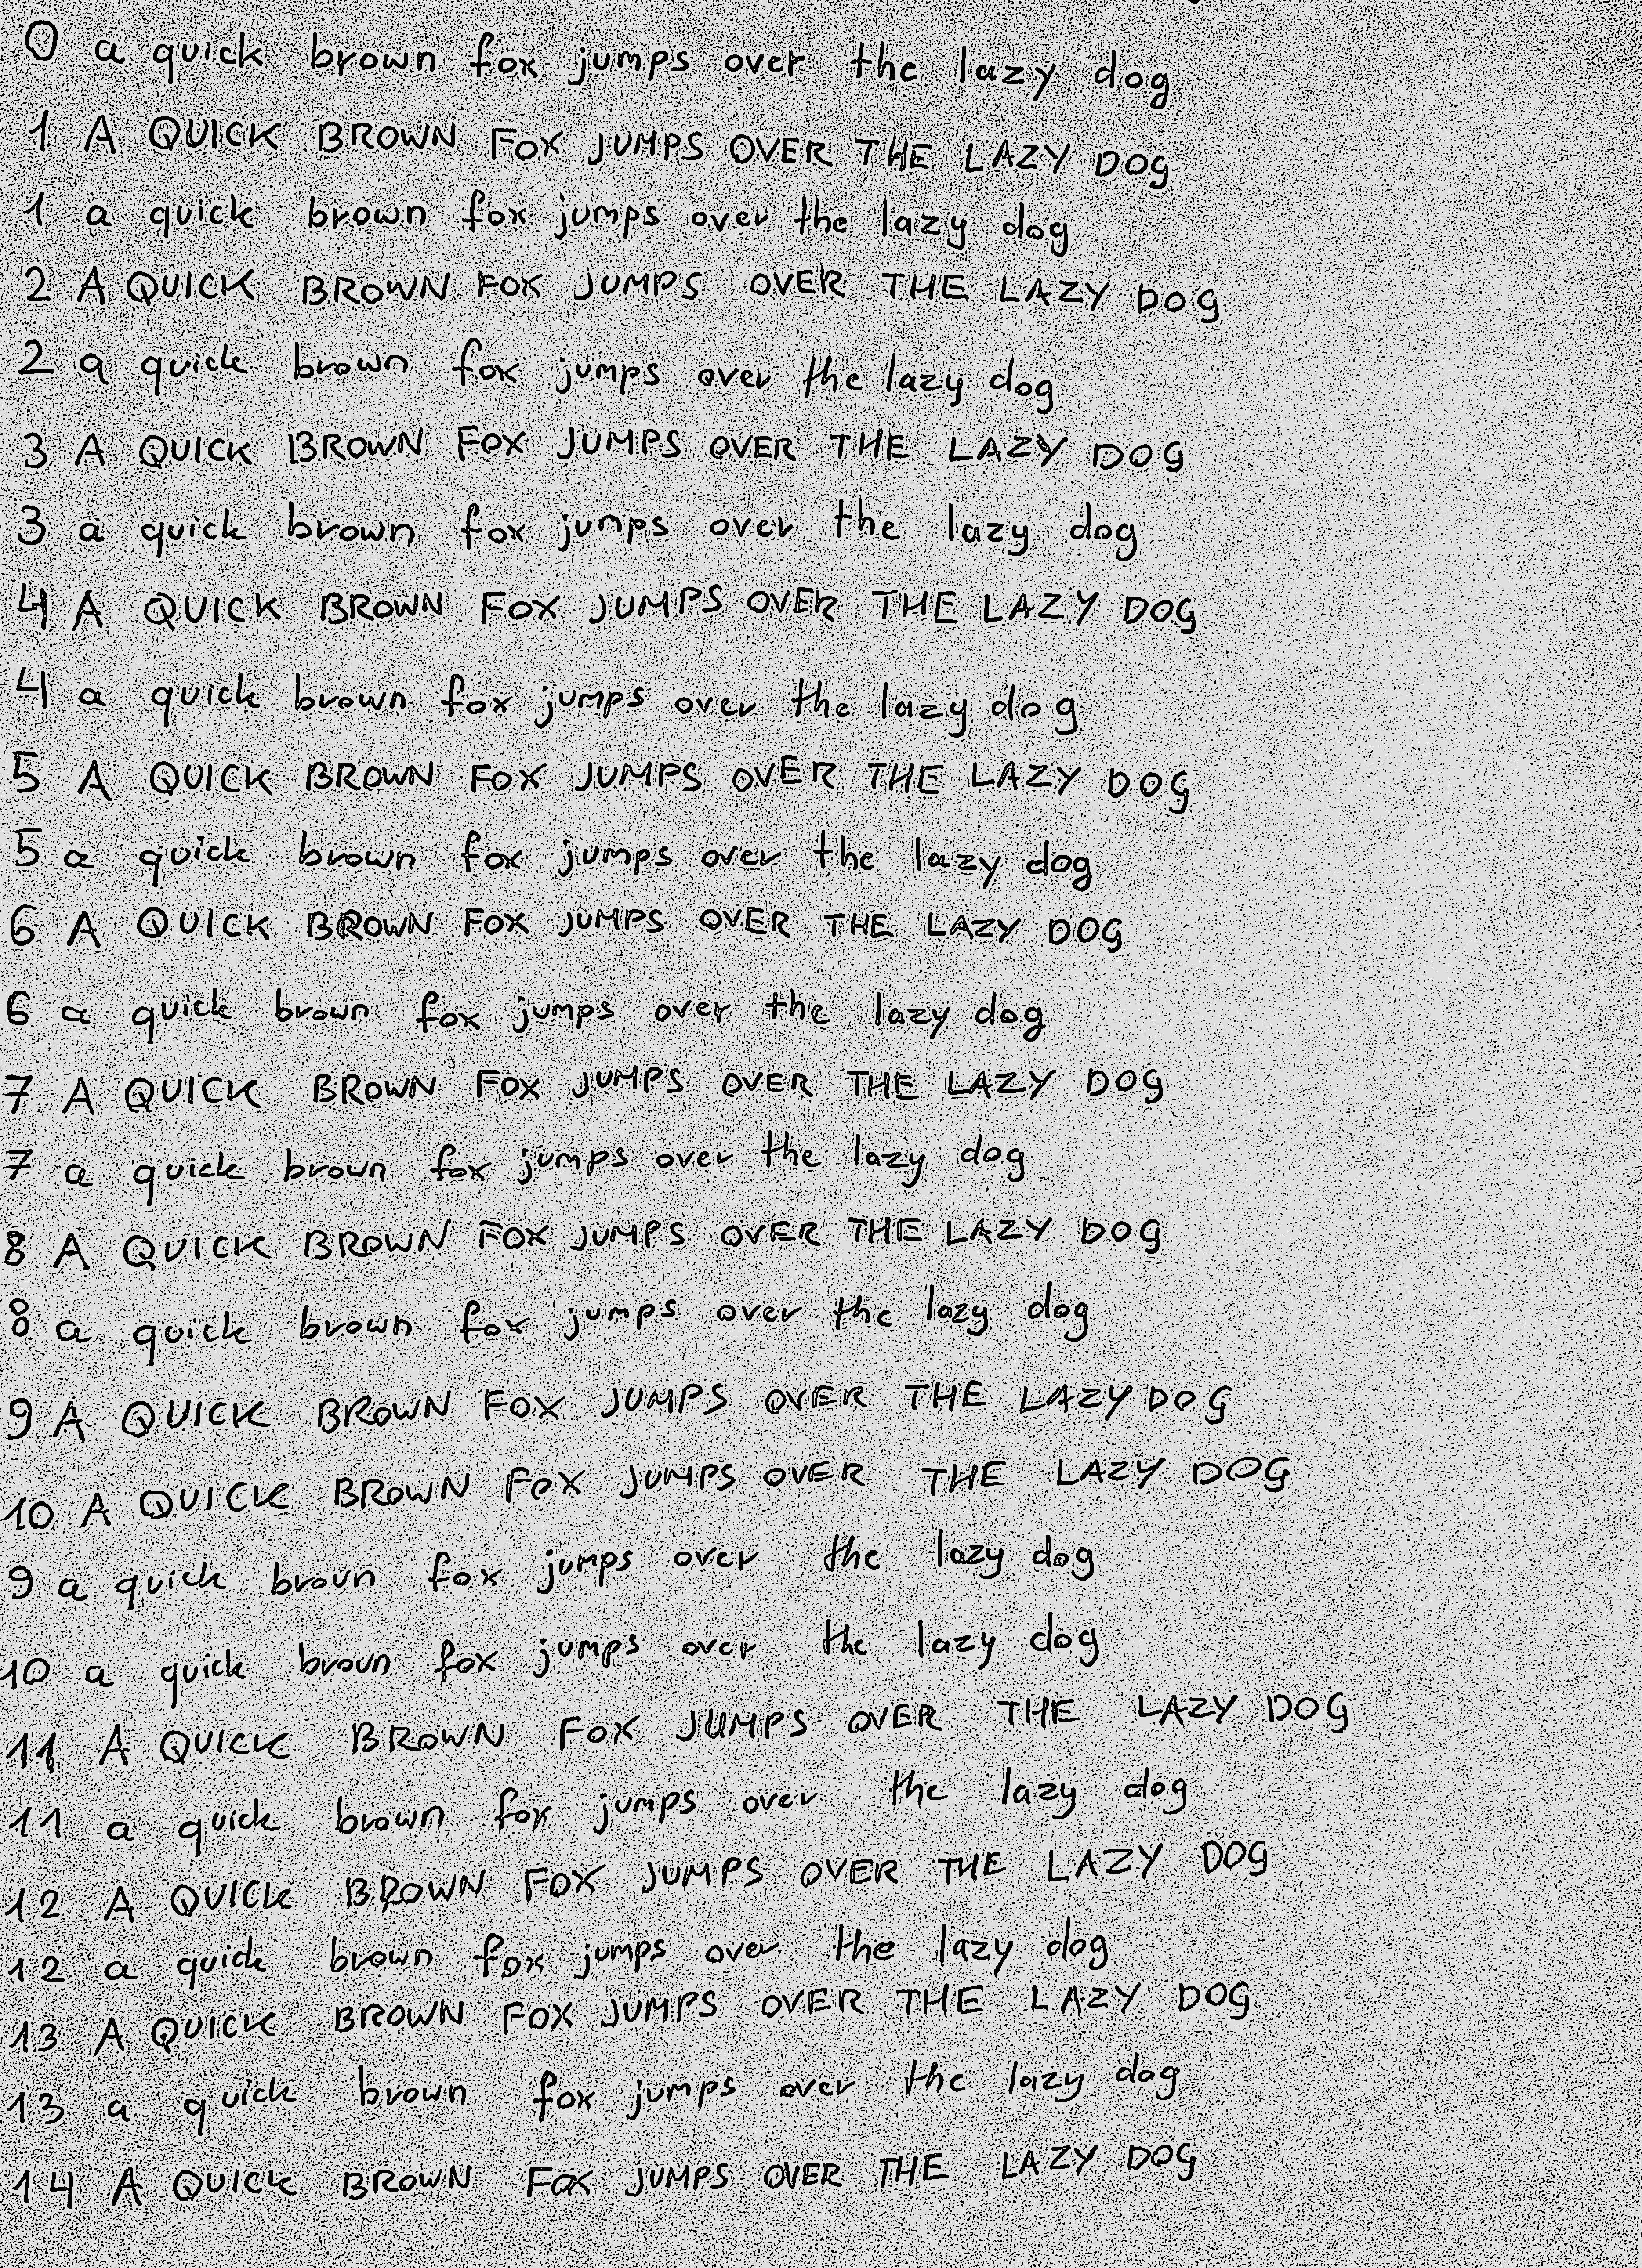 0 a quick brown fox jumps over the lazy dog
1 A QUICK BROWN FOX JUMPS OVER THE LAZY DOG
1 a quick brown fox jumps over the lazy dog
2 A QUICK BROWN FOX JUMPS OVER THE LAZY DOG
2 a quick brown fox jumps over the lazy dog
3 A QUICK BROWN FOX JUMPS OVER THE LAZY DOG
3 a quick brown fox jumps over the lazy dog
4 A QUICK BROWN FOX JUMPS OVER THE LAZY DOG
4 a quick brown fox jumps over the lazy dog
5 A QUICK BROWN FOX JUMPS OVER THE LAZY DOG
5 a quick brown fox jumps over the lazy dog
6 A QUICK BROWN FOX JUMPS OVER THE LAZY DOG
6 a quick brown fox jumps over the lazy dog
7 A QUICK BROWN FOX JUMPS OVER THE LAZY DOG
7 a quick brown fox jumps over the lazy dog
8 A QUICK BROWN FOX JUMPS OVER THE LAZY DOG
8 a quick brown fox jumps over the lazy dog
9 A QUICK BROWN FOX JUMPS OVER THE LAZY DOG
10 A QUICK BROWN FOX JUMPS OVER THE LAZY DOG
9 a quick brown fox jumps over the lazy dog
10 a quick brown fox jumps over the lazy dog
11 A QUICK BROWN FOX JUMPS OVER THE LAZY DOG
11 a quick brown fox jumps over the lazy dog
12 A QUICK BROWN FOX JUMPS OVER THE LAZY DOG
12 a quick brown fox jumps over the lazy dog
13 A QUICK BROWN FOX JUMPS OVER THE LAZY DOG
13 a quick brown fox jumps over the lazy dog
14 A QUICK BROWN FOX JUMPS OVER THE LAZY DOG